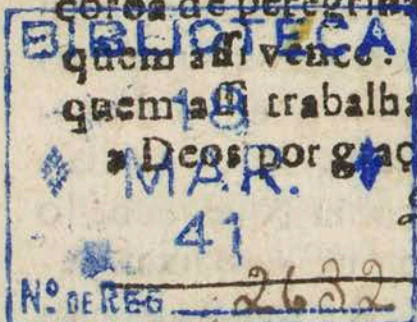 coroa de peregrin
quem assi vence.
quem assi trabalh
a Deos por graç
BIBLIOTECA
18
MAR.
41
Nº DE REG 2632